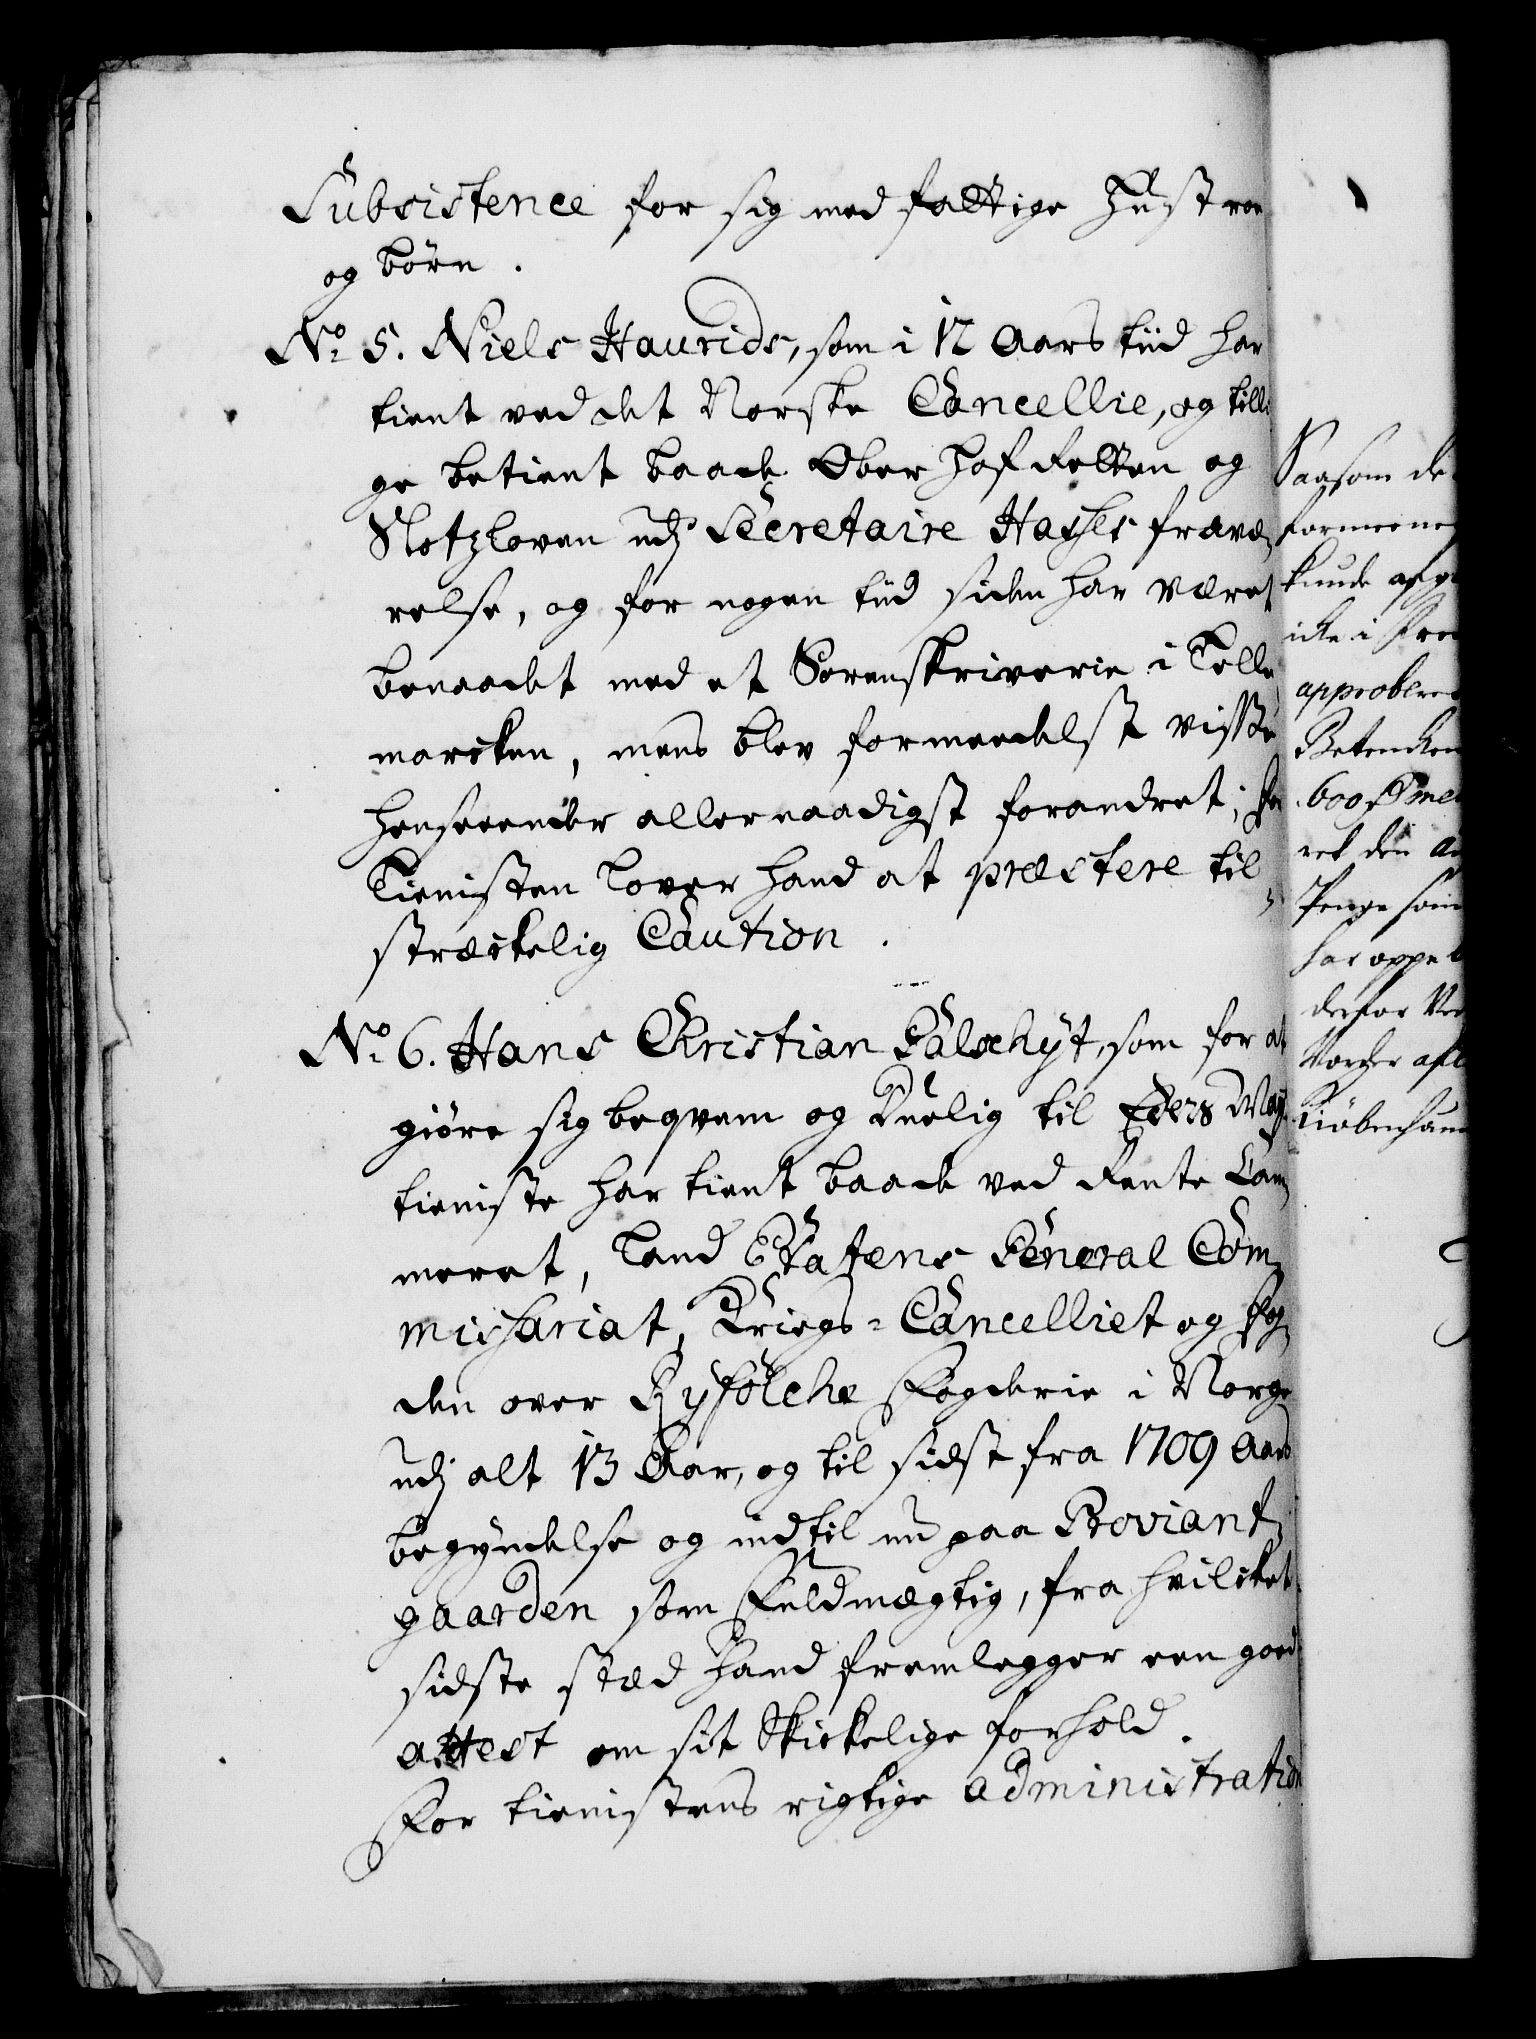 Subsistence for sig med fattige Hustroe
og børn.
No 5. Niels Haurids, som i 12 Aars tiid har
tient ved det Norske Cancellie, og tilli
ge betient baade Ober Hof Retten og
Slotzloven udj Secretaire Hasses fravæ,
relse, og for nogen tiid siden har været
benaadet med et Sorenskriverie i Telle,
marcken, mens blev formedelst visse
henseender allernaadigst forandret; for
Tienisten lover hand at præstere til,
streckelig Caution.
No 6. Hans Christian Palschyt, som for at
giøre sig beqvem og Duelig til Eders May:
tieniste har tient baade ved Rente Cam,
meret, Land Etatens General Com,
missariat, Kriegs-Cancelliet og Fog,
den over Ryfølche Fogderie i Norge
udj alt 13 Aar, og til sidst fra 1709 Aars
begyndelse og indtil nu paa Proviant,
gaarden som Fuldmægtig, fra hvilcket
sidste stæd hand fremlegger een goed
attest om sit Skickelige forhold.
For tienistens rigtige administration
Saasom de
formeene
kunde afg
icke i Fre
approbere
Betencken
600 me
ret den
Penge som
har oppe
derfor
Vorder afl
Kiøbenhaun